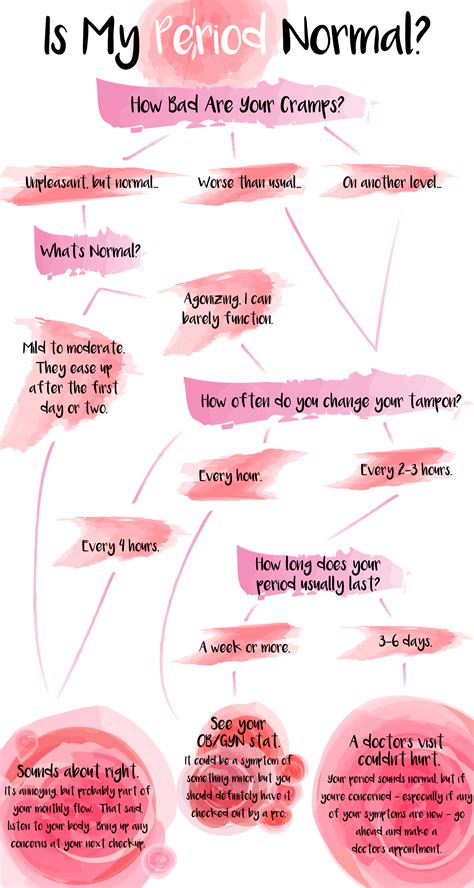 Is My Period Normal?
How Bad Are Your Cramps?
Unpleasant, but normal...
Worse than usual...
On another level...
Whats Normal?
Agonizing, I can
barely function.
Mild to moderate.
They ease up
after the first
day or two.
How often do you change your tampon?
Every hour.
Every 2-3 hours.
Every 4 hours.
How long does your
period usually last?
A week or more.
3-6 days.
Sounds about right.
It's annoying, but probably part of
your monthly flow. That said,
listen to your body. Bring up any
concerns at your next checkup.
See your
OB/GYN stat.
It could be a symptom of
something minor, but you
should definitely have it
checked out by a pro.
A doctor's visit
couldn't hurt.
Your period sounds normal, but if
you're concerned - especially if any
of your symptoms are new - go
ahead and make a
doctor's appointment.